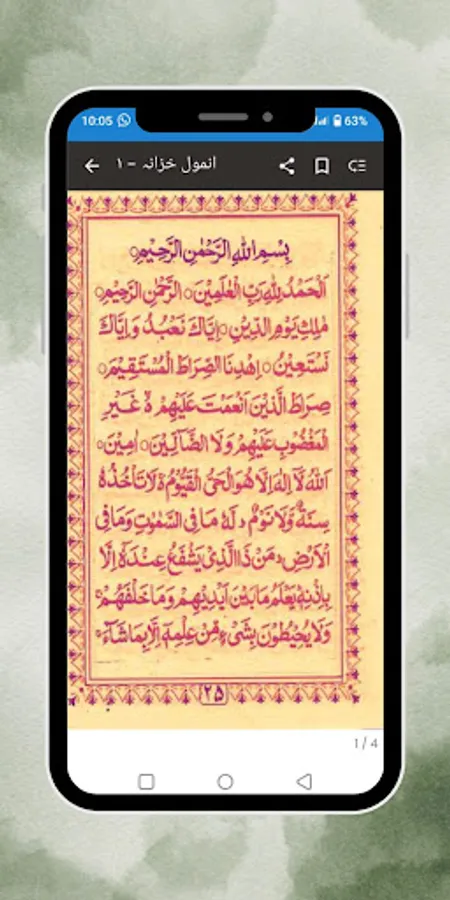 10:05 63%
انمول خزانہ – ۱
بِسْمِ اللهِ الرَّحْمٰنِ الرَّحِيْمِ
اَلْحَمْدُ لِلّٰهِ رَبِّ الْعٰلَمِيْنَ۝ الرَّحْمٰنِ الرَّحِيْمِ۝
مٰلِكِ يَوْمِ الدِّيْنِ۝ اِيَّاكَ نَعْبُدُ وَاِيَّاكَ
نَسْتَعِيْنُ۝ اِهْدِنَا الصِّرَاطَ الْمُسْتَقِيْمَ۝
صِرَاطَ الَّذِيْنَ اَنْعَمْتَ عَلَيْهِمْ ۵ غَيْرِ
الْمَغْضُوْبِ عَلَيْهِمْ وَلَا الضَّآلِّيْنَ۝ اٰمِيْنَ۝
اَللّٰهُ لَآ اِلٰهَ اِلَّا هُوَ الْحَيُّ الْقَيُّوْمُ ۵ لَا تَاْخُذُهٗ
سِنَةٌ وَّلَا نَوْمٌ ؕ لَهٗ مَا فِي السَّمٰوٰتِ وَمَا فِي
الْاَرْضِ ؕ مَنْ ذَا الَّذِيْ يَشْفَعُ عِنْدَهٗٓ اِلَّا
بِاِذْنِهٖ يَعْلَمُ مَا بَيْنَ اَيْدِيْهِمْ وَمَا خَلْفَهُمْ ۚ
وَلَا يُحِيْطُوْنَ بِشَيْءٍ مِّنْ عِلْمِهٖٓ اِلَّا بِمَا شَآءَ ۚ
۲۵
1 / 4